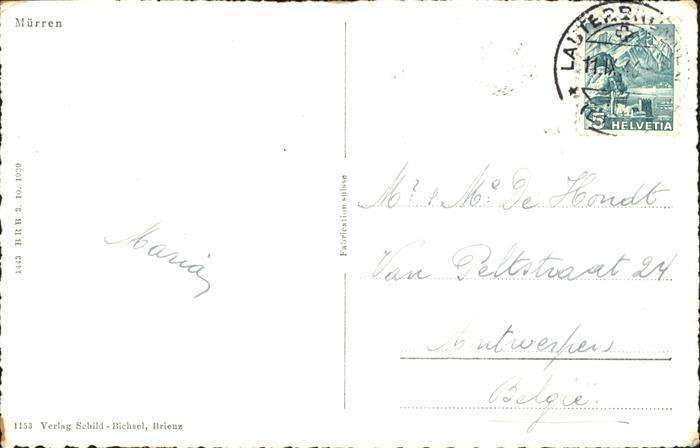 Mürren
LAUTERBRUNNEN
11.IX.
5 HELVETIA
1443 BRB 3. 10. 1929
Fabrication suisse
Maria
Mr. & Me. De Hondt
Van Peltstraat 24
Antwerpen
België.
1153 Verlag Schild-Bichsel, Brienz